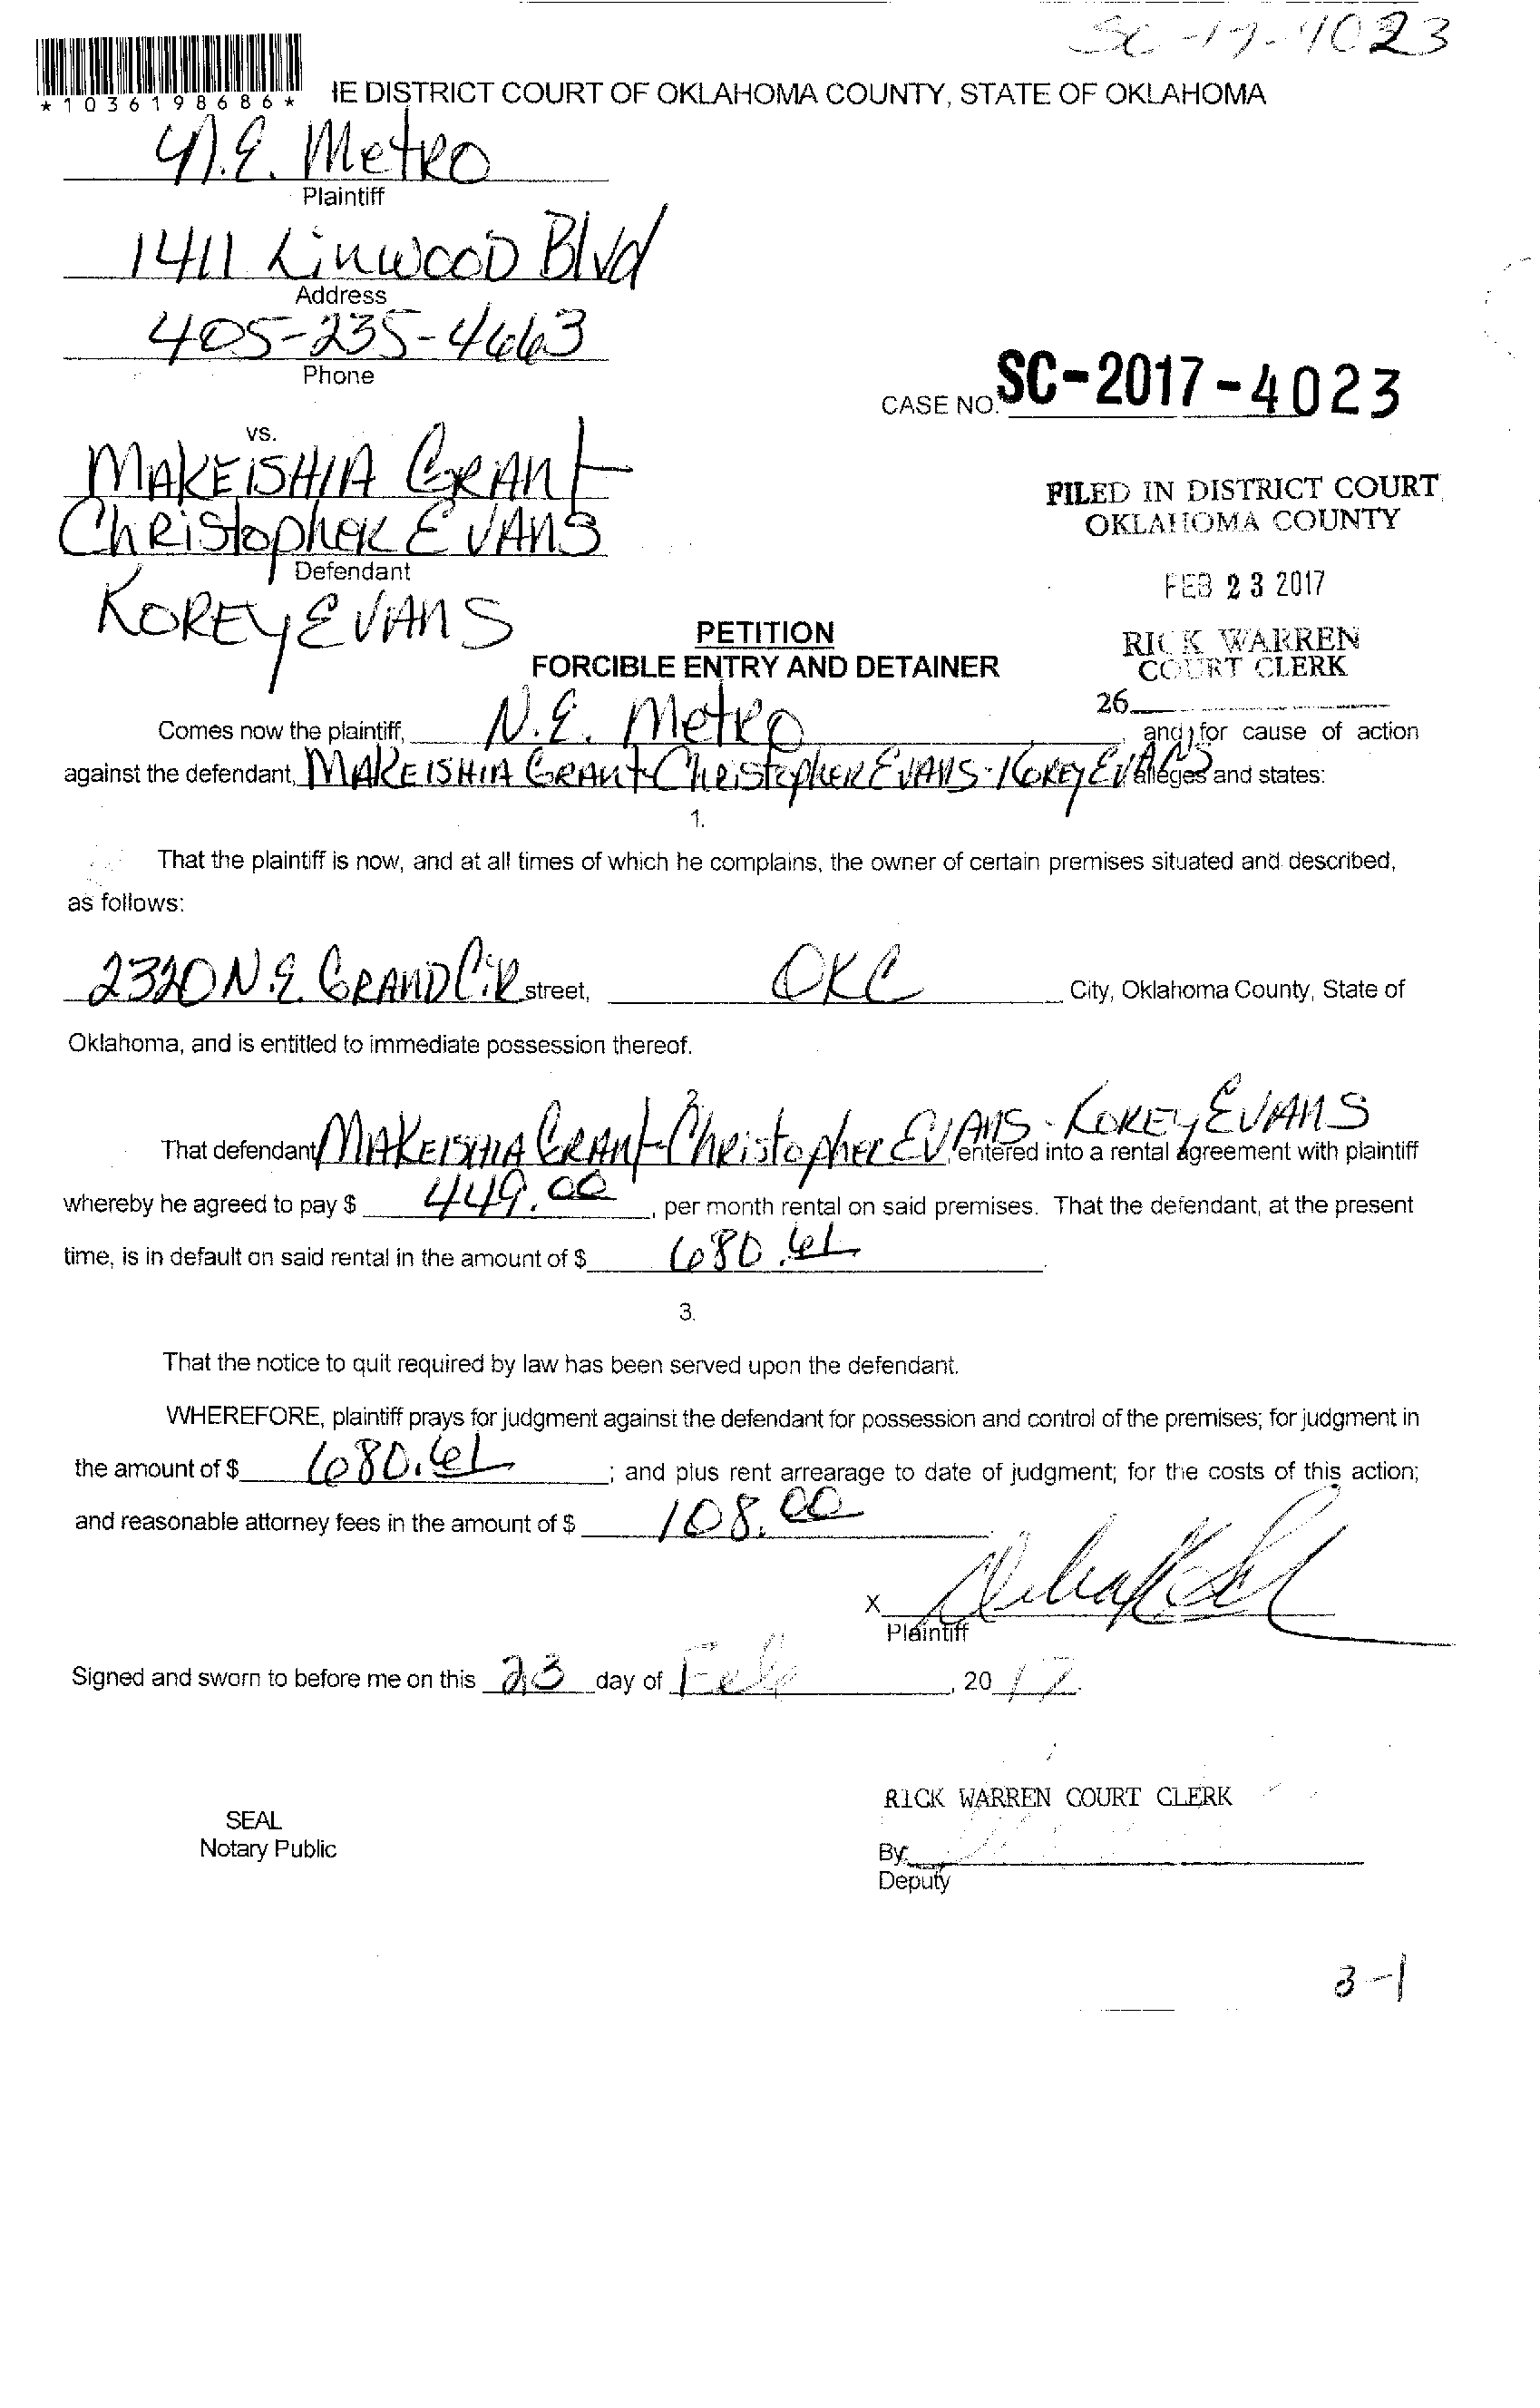 SC-17-4023
*1036198686*
IE DISTRICT COURT OF OKLAHOMA COUNTY, STATE OF OKLAHOMA
N.E. Metro
Plaintiff
1411 Linwood Blvd
Address
405-235-4663
Phone
CASE NO. SC-2017-4023
vs.
MAKEISHIA GRANT
Christopher EVANS
Defendant
KOREY EVANS
FILED IN DISTRICT COURT
OKLAHOMA COUNTY
FEB 23 2017
RICK WARREN
COURT CLERK
26
PETITION
FORCIBLE ENTRY AND DETAINER
Comes now the plaintiff, N.E. Metro, and for cause of action
against the defendant, MAKEISHIA GRANT-Christopher EVANS-KOREY EVANS alleges and states:
1.
That the plaintiff is now, and at all times of which he complains, the owner of certain premises situated and described,
as follows:
2320 N.E. GRAND CiR street, OKC City, Oklahoma County, State of
Oklahoma, and is entitled to immediate possession thereof.
That defendant MAKEISHIA GRANT-Christopher EVANS-KOREY EVANS, entered into a rental agreement with plaintiff
whereby he agreed to pay $ 449.00, per month rental on said premises. That the defendant, at the present
time, is in default on said rental in the amount of $
3.
That the notice to quit required by law has been served upon the defendant.
WHEREFORE, plaintiff prays for judgment against the defendant for possession and control of the premises; for judgment in
the amount of $ ; and plus rent arrearage to date of judgment; for the costs of this action;
and reasonable attorney fees in the amount of $ 108.00
X
Plaintiff
Signed and sworn to before me on this 23 day of Feb, 2017.
RICK WARREN COURT CLERK
SEAL
Notary Public
By:
Deputy
3-1